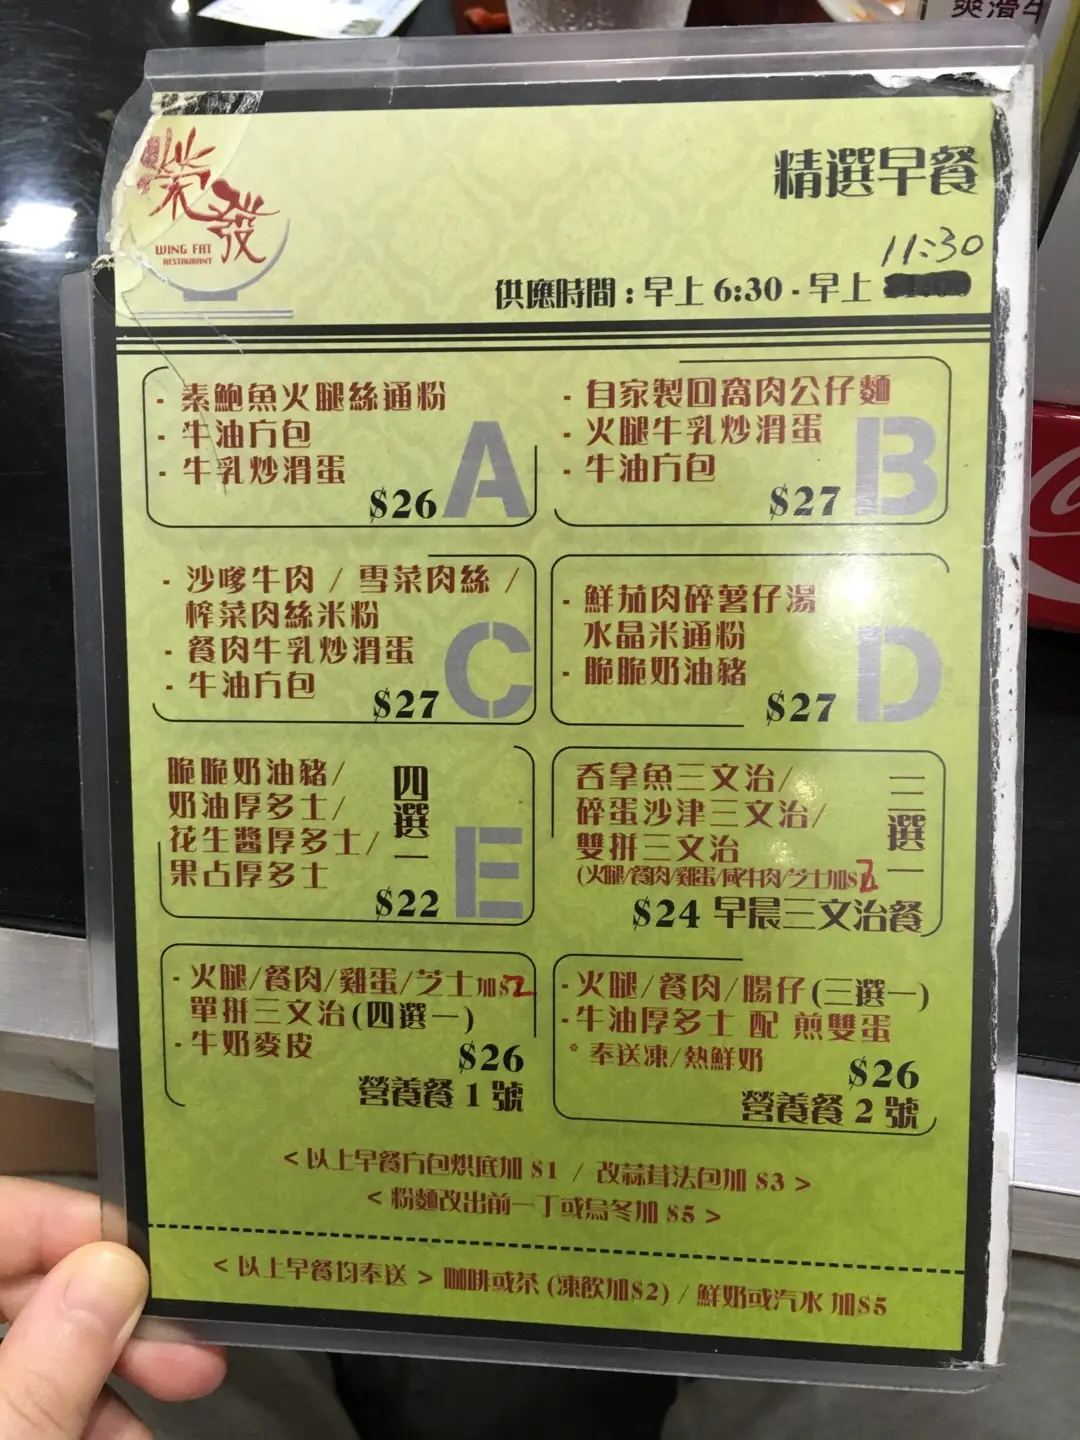 爽滑牛
榮發
WING FAT
RESTAURANT
精選早餐
11:30
供應時間：早上 6:30 - 早上
· 素鮑魚火腿絲通粉
· 牛油方包
· 牛乳炒滑蛋
$26 A
· 自家製回窩肉公仔麵
· 火腿牛乳炒滑蛋
· 牛油方包
$27 B
· 沙嗲牛肉 / 雪菜肉絲 /
榨菜肉絲米粉
· 餐肉牛乳炒滑蛋
· 牛油方包
$27 C
· 鮮茄肉碎薯仔湯
水晶米通粉
· 脆脆奶油豬
$27 D
脆脆奶油豬/
奶油厚多士/
花生醬厚多士/
果占厚多士
四選一
$22 E
吞拿魚三文治/
碎蛋沙津三文治/
雙拼三文治
(火腿/餐肉/雞蛋/咸牛肉/芝士加$2
三選一
$24 早晨三文治餐
· 火腿/餐肉/雞蛋/芝士加$2
單拼三文治(四選一)
· 牛奶麥皮
$26
營養餐 1 號
· 火腿/餐肉/腸仔(三選一)
· 牛油厚多士 配 煎雙蛋
* 奉送凍/熱鮮奶
$26
營養餐 2 號
< 以上早餐方包烘底加 $1 / 改蒜茸法包加 $3 >
< 粉麵改出前一丁或烏冬加 $5 >
< 以上早餐均奉送 > 咖啡或茶 (凍飲加$2) / 鮮奶或汽水 加$5